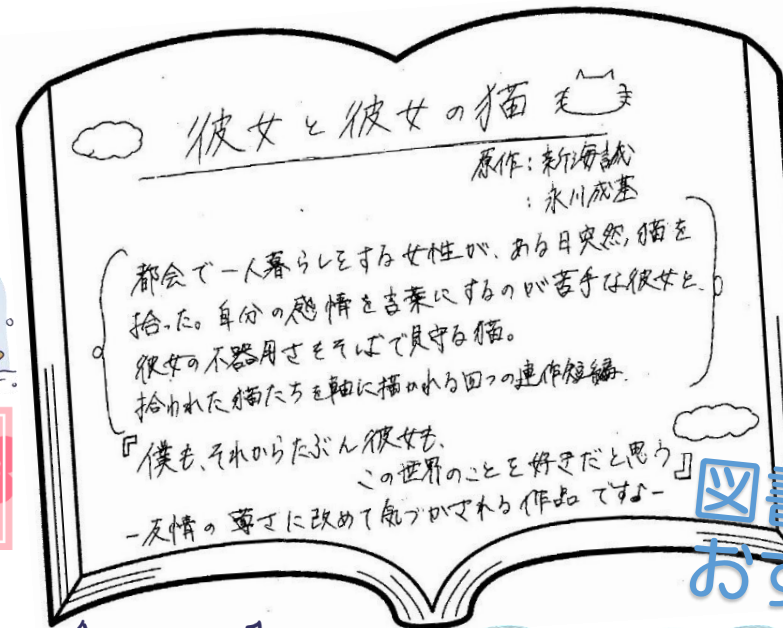 彼女と彼女の猫
原作:新海誠
:永川成基
都会で一人暮らしをする女性が、ある日突然、猫を
拾った。自分の感情を言葉にするのが苦手な彼女と、
彼女の不器用さをそばで見守る猫。
拾われた猫たちを軸に描かれる四つの連作短編.
『僕も、それからたぶん彼女も、
この世界のことを好きだと思う』
-友情の尊さに改めて気づかされる作品ですよ-
図
おす